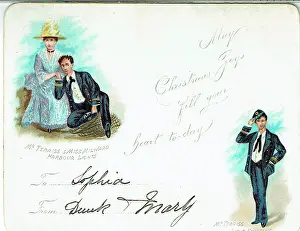 May
Christmas Joys
fill your
heart to-day
Mr TERRISS & MISS MILLWARD
HARBOUR LIGHTS
To Sophia
From Derek & Mary
Mr TERRISS